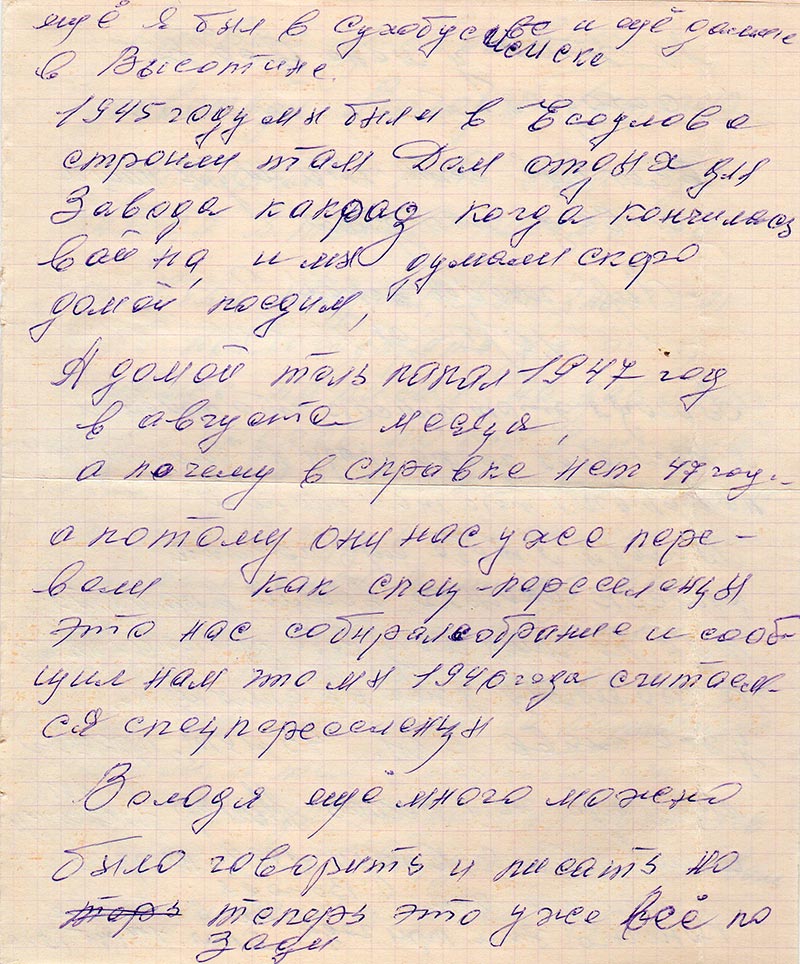 ещё я был в Сухобуссве и ещё далше
исиске
в Высотине.
1945 году мы были в Есаулова
строили там Дом отдыха для
Завода какраз когда кончилась
война, и мы думали скоро
домой поедим,
А домой толь папал 1947 год
в августа месяця,
а почему в справке нет 47 год..
а потому они нас уже пере-
вели как спец-переселенцы
это нас собирал собрание и сооб-
щил нам что мы 1946 года считаем-
ся спецпереселенцы
Володя ещё много можено
было говорить и писать но
теперь это уже всё по
зади